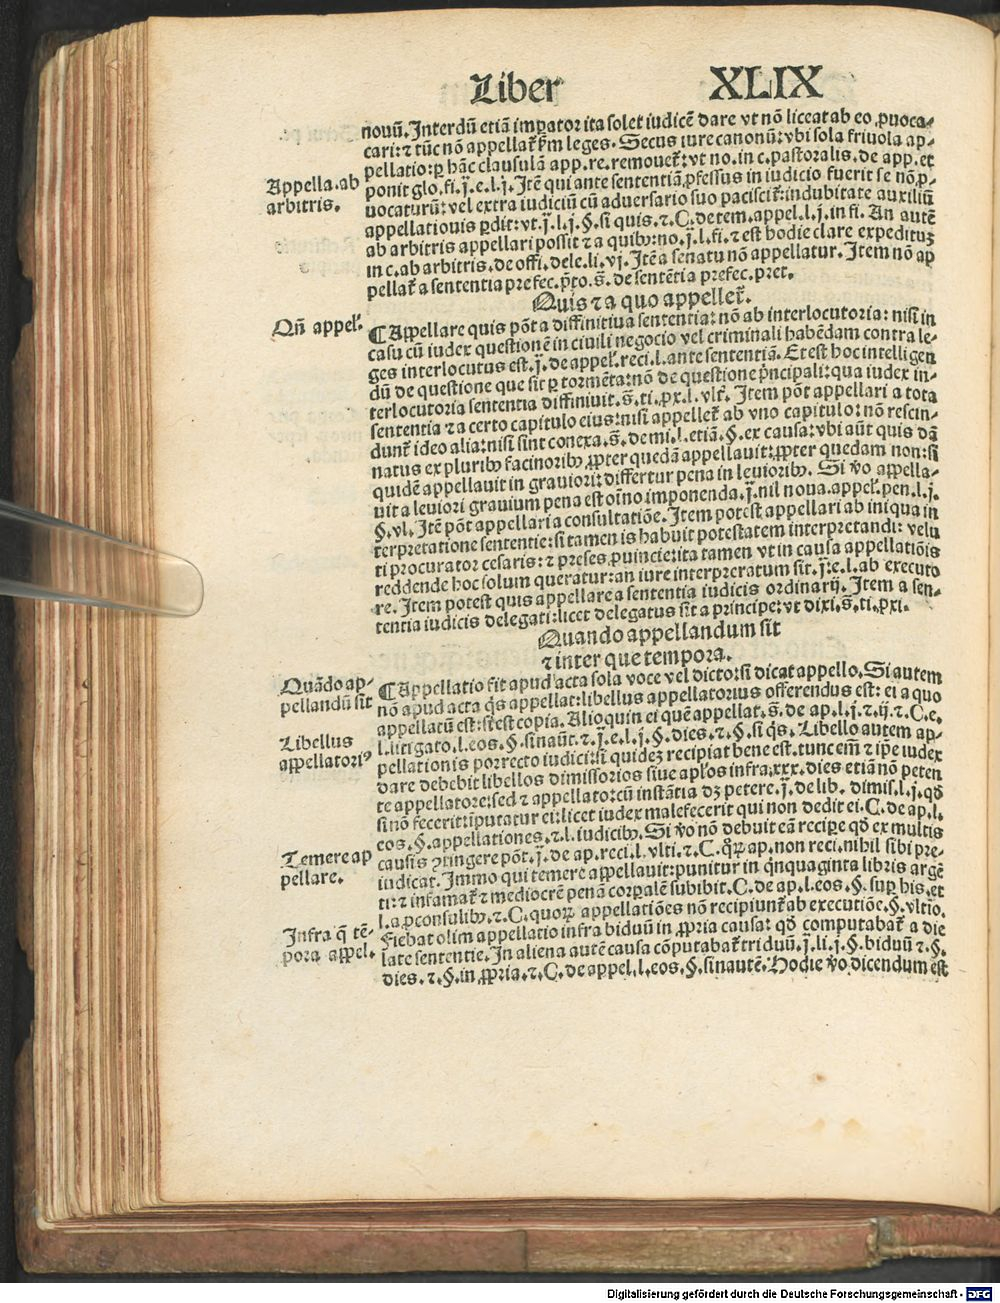 Liber XLIX
nouũ. Interdũ etiã impator ita solet iudicẽ dare vt nõ liceat ab eo ꝓuoca-
cari: ⁊ tũc nõ appellat᷑ ẜm leges. Secus iure canonũ: vbi sola friuola ap-
pellatio: ꝑ hãc clausulã app. re. remouet᷑: vt no. in c. pastoralis. de app. et
ponit glo. fi. j̈. e. l. j. Itẽ qui ante sententiã ꝓfessus in iudicio fuerit se nõ ꝓ-
uocaturũ: vel extra iudiciũ cũ aduersario suo paciscit᷑: indubitate auxiliũ
appellationis ꝑdit: vt. j̈. l. j. §. si quis. ⁊. C. de tem. appel. l. j. in fi. An autẽ
ab arbitris appellari possit ⁊ a quibꝫ: no. j̈. l. fi. ⁊ est hodie clare expedituꝫ
in c. ab arbitris. de offi. dele. li. vj. Itẽ a senatu nõ appellatur. Item nõ ap
pellat᷑ a sententia prefec. p̃to. s̈. de sentẽtia prefec. pret.
Appella. ab
arbitris.
Quis ⁊ a quo appellet᷑.
Qñ appel᷑.
¶ Appellare quis põt a diffinitiua sententia: nõ ab interlocutoria: nisi in
casu cũ iudex questionẽ in ciuili negocio vel criminali habẽdam contra le-
ges interlocutus est. j̈. de appel᷑. reci. l. ante sententiã. Et est hoc intelligen
dũ de questione que sit ꝑ tormẽta: nõ de questione p̃ncipali: qua iudex in-
terlocutoria sententia diffiniuit. s̈. ti. pꝛ. l. vlt᷑. Item põt appellari a tota
sententia ⁊ a certo capitulo eius: nisi appellet᷑ ab vno capitulo: nõ rescin-
dunt᷑ ideo alia: nisi sint conexa. s̈. de mi. l. etiã. §. ex causa: vbi aũt quis dã
natus ex pluribꝫ facinoribꝫ ꝓpter quedã appellauit: ꝓpter quedam non: si
quidẽ appellauit in grauiori: differtur pena in leuioribꝫ. Si ṽo appella-
uit a leuiori grauium pena est oĩno imponenda. j̈. nil noua. appel᷑. pen. l. j.
§. vl. Itẽ põt appellari a consultatiõe. Item potest appellari ab iniqua in
terpretatione sententie: si tamen is habuit potestatem interpretandi: velu
ti procurator cesaris: ⁊ preses ꝓuincie: ita tamen vt in causa appellatiõis
reddende hoc solum queratur: an iure interpreratum sit. j̈: e. l. ab executo
re. Item potest quis appellare a sententia iudicis ordinarij. Item a sen-
tentia iudicis delegati: licet delegatus sit a principe: vt dixi. s̈. ti. ꝓxi.
Quando appellandum sit
⁊ inter que tempora.
Quãdo ap-
pellandũ sit
¶ Appellatio fit apud acta sola voce vel dicto: si dicat appello. Si autem
nõ apud acta q̃s appellat: libellus appellatorius offerendus est: ei a quo
appellatũ est: si est copia. Alioquin ei quẽ appellat. s̈. de ap. l. j. ⁊ ij. ⁊. C. e.
l. litigato. l. eos. §. sinaũt. ⁊. j̈. e. l. j. §. dies. ⁊. §. si q̃s. Libello autem ap-
pellationis porrecto iudici: si quideꝫ recipiat bene est. tunc em̃ ⁊ ip̃e iudex
dare debebit libellos dimissorios siue apl'os infra. xxx. dies etiã nõ peten
te appellatore: sed ⁊ appellator: cũ instãtia dꝫ petere. j̈. de lib. dimis. l. j. qđ
si nõ fecerit: ĩputatur ei: licet iudex malefecerit qui non dedit ei. C. de ap. l.
eos. §. appellationes. ⁊. l. iudicibꝫ. Si ṽo nõ debuit eã recipe qđ ex multis
causis ↄtingere põt. j̈. de ap. reci. l. vlti. ⁊. C. q̃ꝝ ap. non reci. nihil sibi pre-
iudicat. Immo qui temere appellauit: punitur in q̃nquaginta libris argẽ
ti: ⁊ infamat᷑ ⁊ mediocrẽ penã corꝑalẽ subibit. C. de ap. l. eos. §. suꝑ his. et
l. a ꝓconsulibꝫ. ⁊. C. quoꝝ appellatiões nõ recipiunt᷑ ab executiõe. §. vltĩo.
Fiebat olim appellatio infra biduũ in ꝓpria causa: qđ computabat᷑ a die
late sententie. In aliena autẽ causa cõputabat᷑ triduũ. j̈. l. j. §. biduũ ⁊. §.
dies. ⁊. §. in ꝓpria. ⁊. C. de appel. l. eos. §. sinautẽ. Hodie ṽo dicendum est
Libellus
appellatori⁹
Temere ap
pellare.
Infra q̃ tẽ-
pora appel.
Digitalisierung gefördert durch die Deutsche Forschungsgemeinschaft - DFG